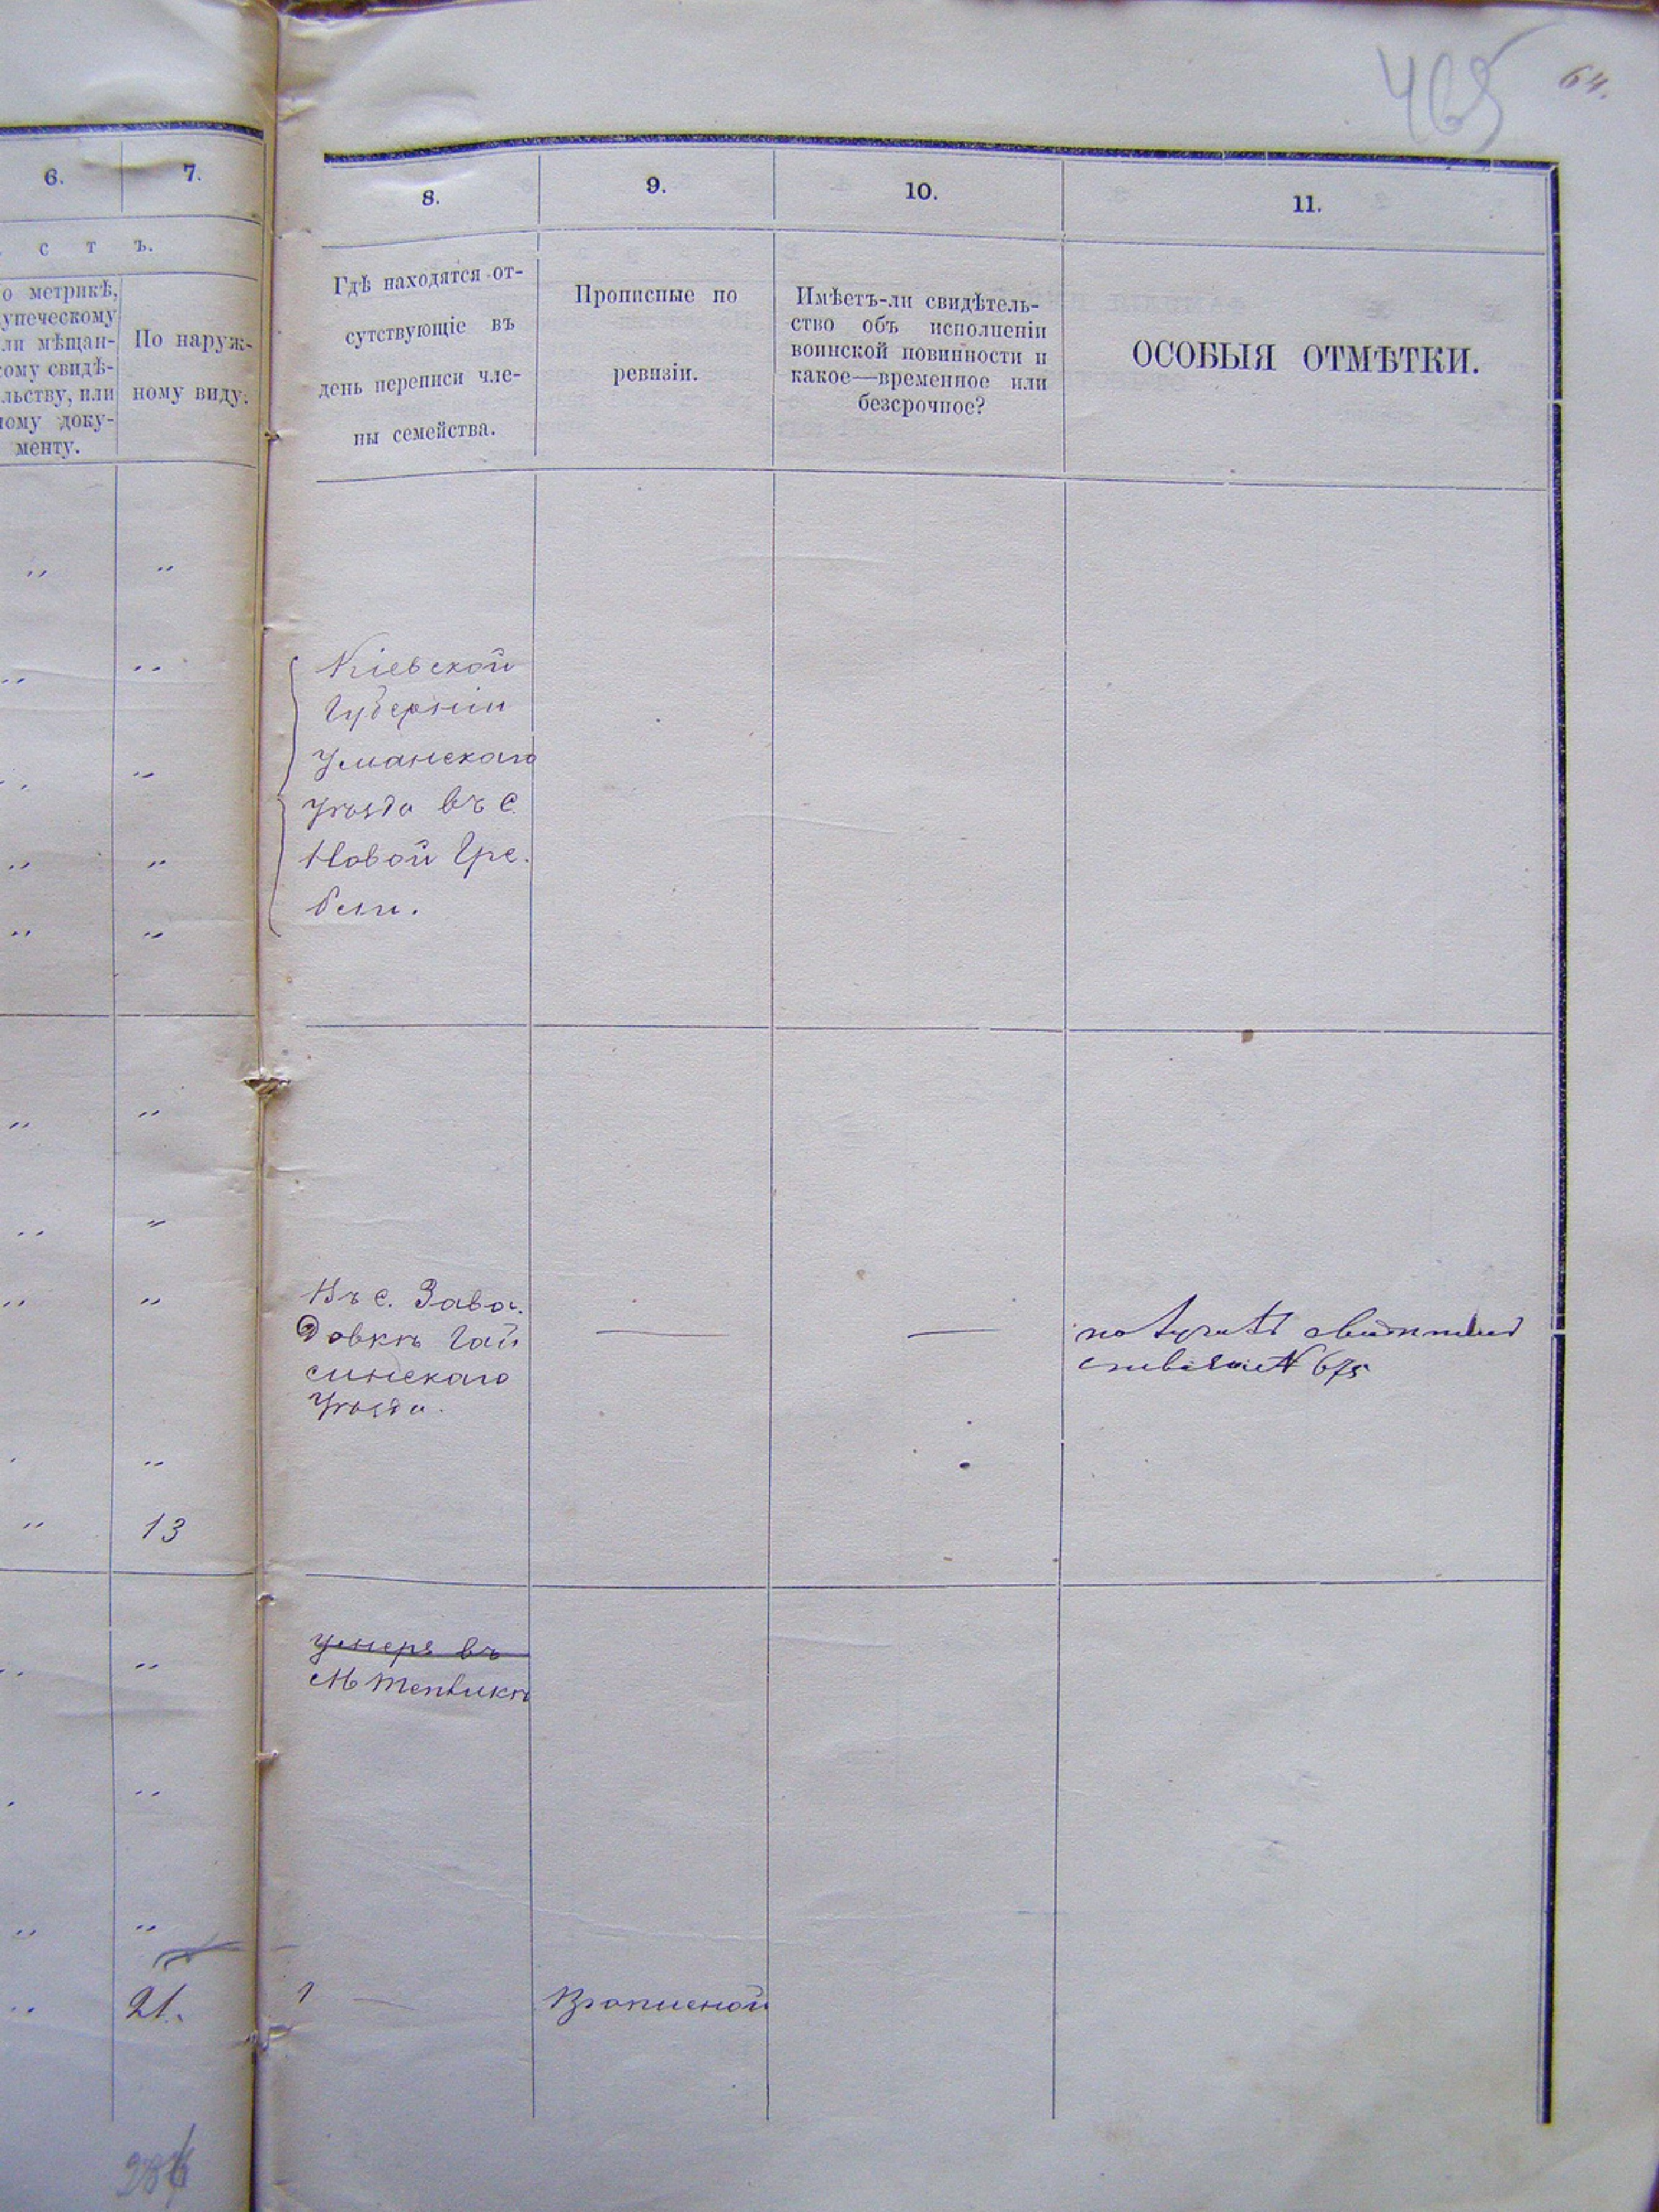 465
64.
6.
7.
с т ъ.
о метрикѣ,
упеческому
ли мѣщан-
ому свидѣ-
льству, или
ному доку-
менту.
По наруж-
ному виду.
8.
9.
10.
11.
Гдѣ находятся от-
сутствующіе въ
день переписи чле-
ны семейства.
Прописные по
ревизіи.
Имѣетъ-ли свидѣтель-
ство объ исполненіи
воинской повинности и
какое—временное или
безсрочное?
ОСОБЫЯ ОТМѢТКИ.
„ „
„ „
Кіевской
Губерніи
Уманскаго
уѣзда въ с.
Новой Гре-
бли.
„ „
„ „
„ „
„ „
„ „
„ „
Въ с. Зава-
довкѣ Гай
синскаго
уѣзда.
— —
№ 675
„
„ 13
Умеръ въ
м Тепликѣ
„ „
„
„ „
„ 21.
Прописной